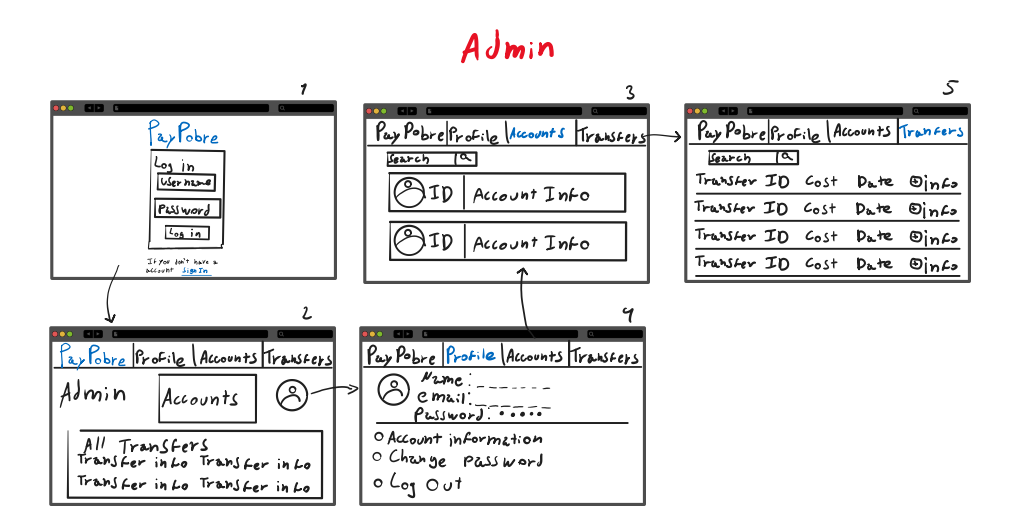 Admin
1
PayPobre
Log in
Username
Password
Log in
If you don't have a
account Sign In
2
PayPobre Profile Accounts Transfers
Admin
Accounts
All Transfers
Transfer info Transfer info
Transfer info Transfer info
3
PayPobre Profile Accounts Transfers
Search
ID Account Info
ID Account Info
4
PayPobre Profile Accounts Transfers
Name:
email:
Password:
Account information
Change Password
Log Out
5
PayPobre Profile Accounts Tranfers
Search
Transfer ID Cost Date info
Transfer ID Cost Date info
Transfer ID Cost Date info
Transfer ID Cost Date info